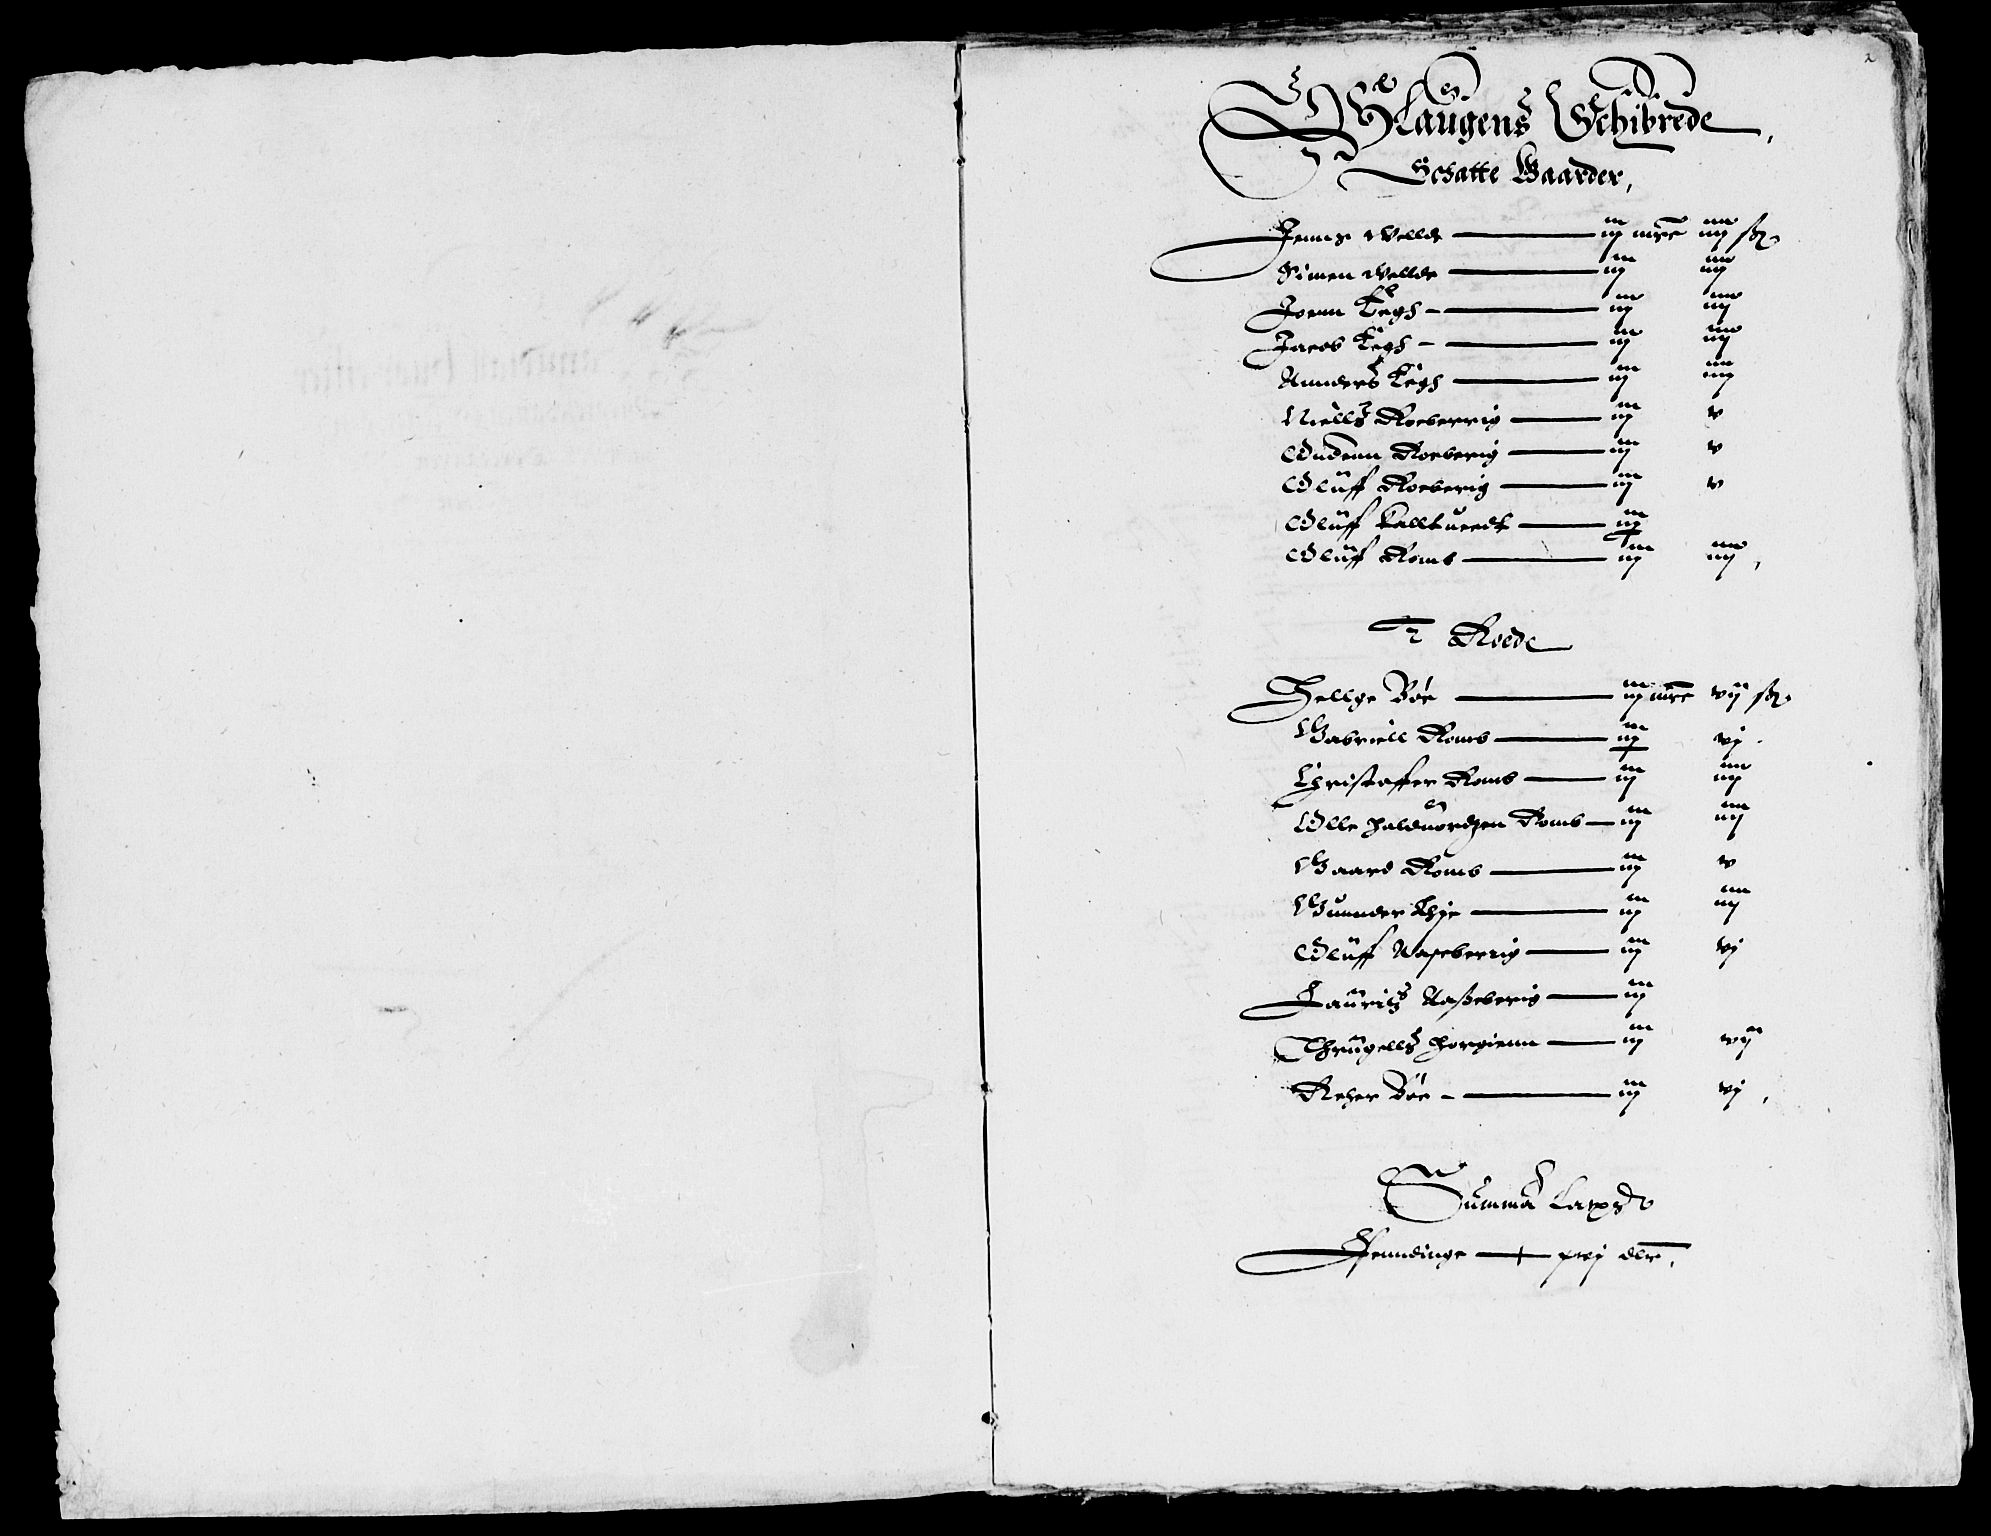 2
Slaugens Schibrede,
Schatte Gaarder,
Jenns Velle — iij mrc iiij ß.
Simen Velle — iij iiij
Joenn Kegh — iij iiij
Jacob Kegh — iij iiij
Annders Kegh — iij iiij
Niells Roeberrig — iij v
Gudenn Roeberig — iij v
Oluff Roeberig — iij v
Oluff — iij
Oluff Roms — iij iiij,
Roede
Hellge Bøe — iij mrc vij ß.
Gabriell Roms — iij vj
Christaffer Roms — iij iiij
Olle Halduordzen Roms — iij iiij
Gaard Roms — iij v
Gunnder — iij iiij
Oluff Aaseberrig — iij vj
Lauritz Aaßeberig — iij
Thrugells Horgienn — iij vij
Reher Bøe — iij vj,
Summa
Penndinge — xvj dlr,